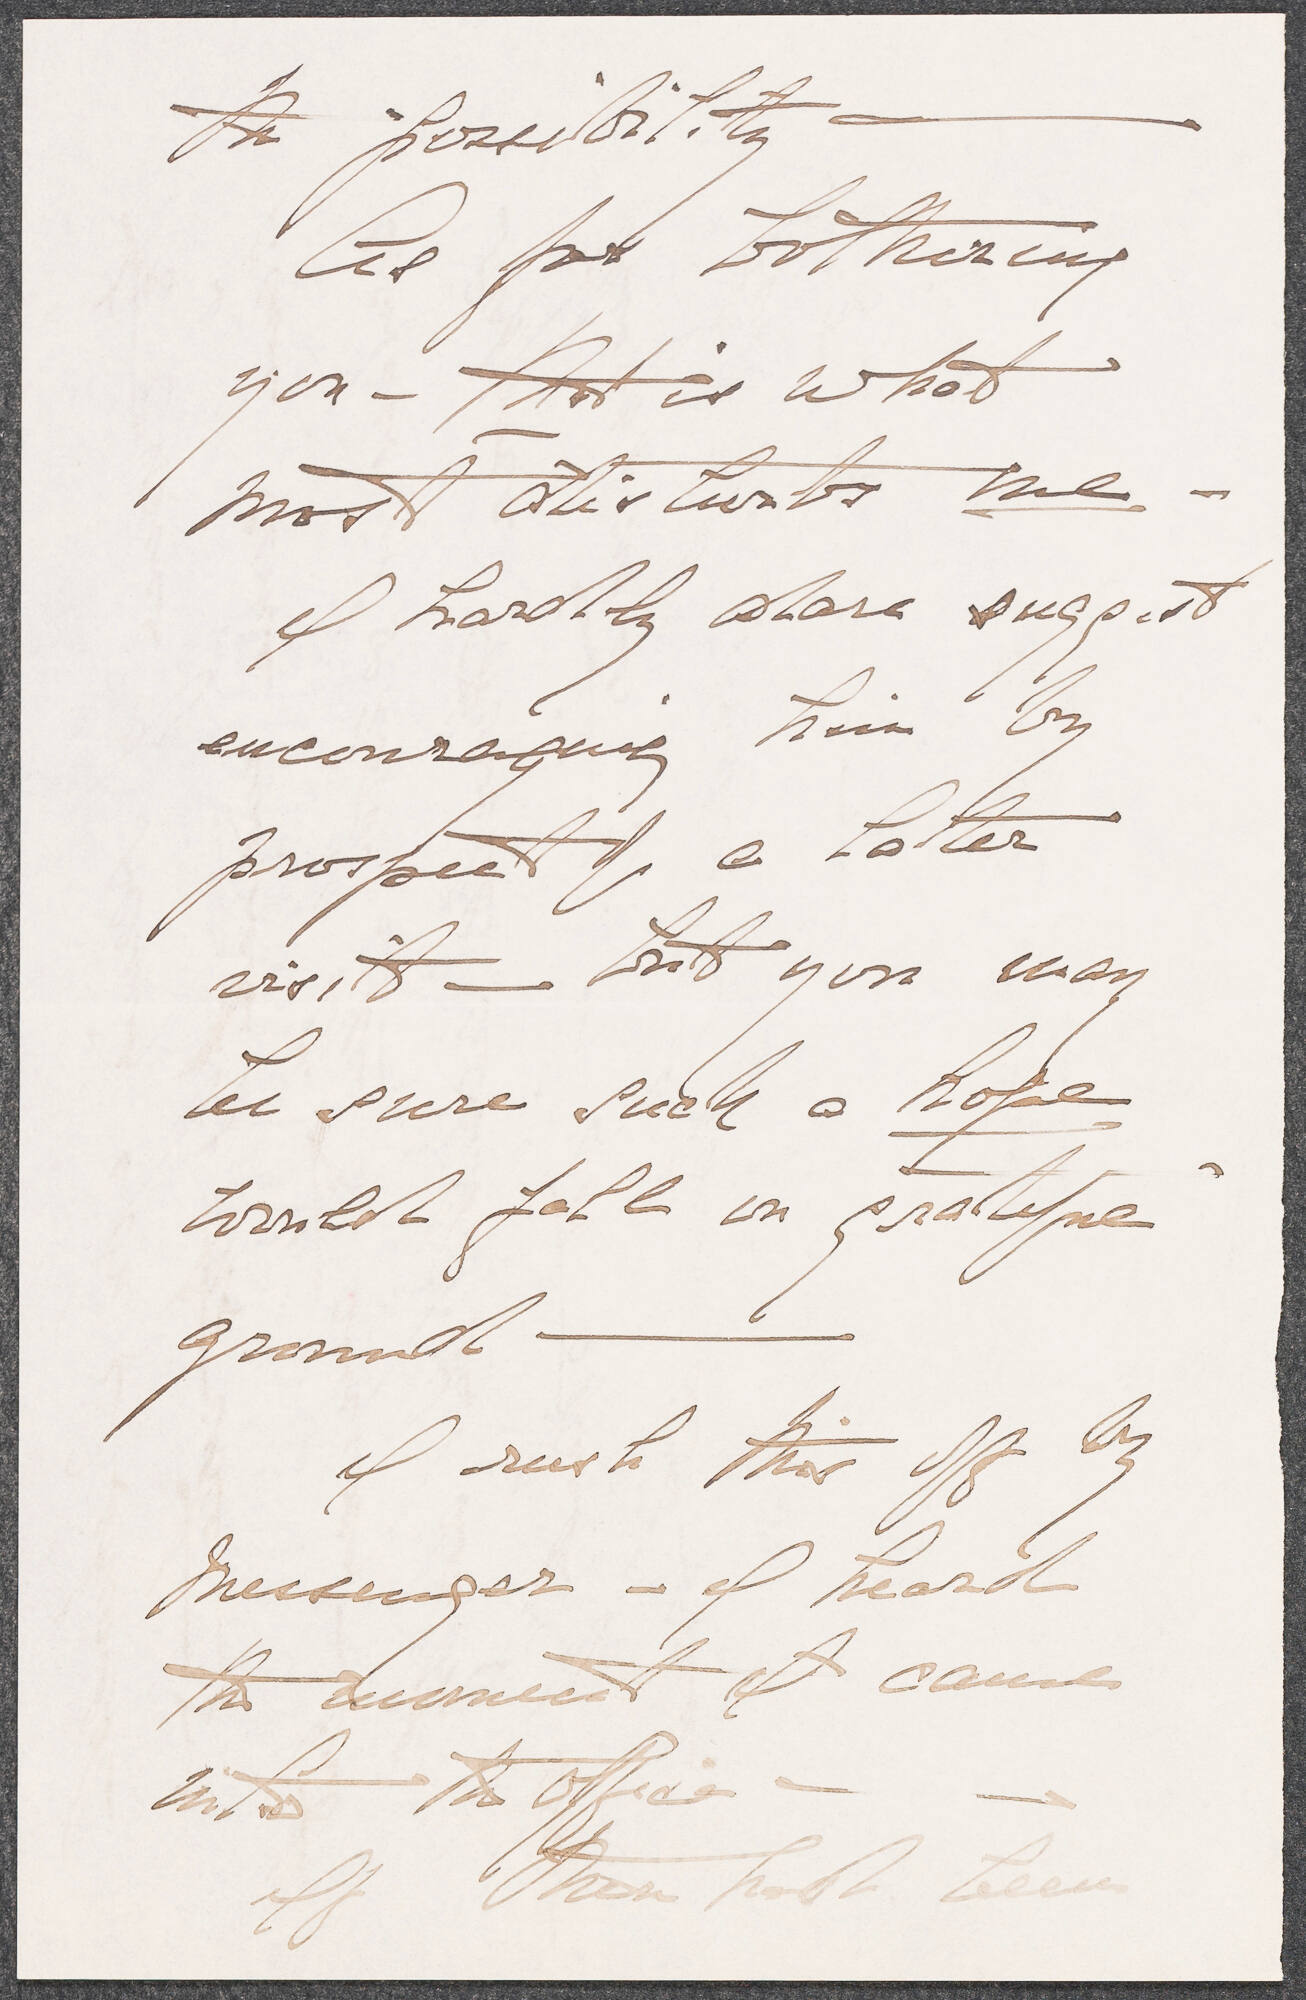 the possibility —
As for bothering
you – that is what
most disturbs me –
I hardly dare suggest
encouraging him by
prospect of a later
visit — but you may
be sure such a hope
would fall on grateful
ground —
I rush this off by
messenger – I heard
the moment it came
into the office – —
If there had been